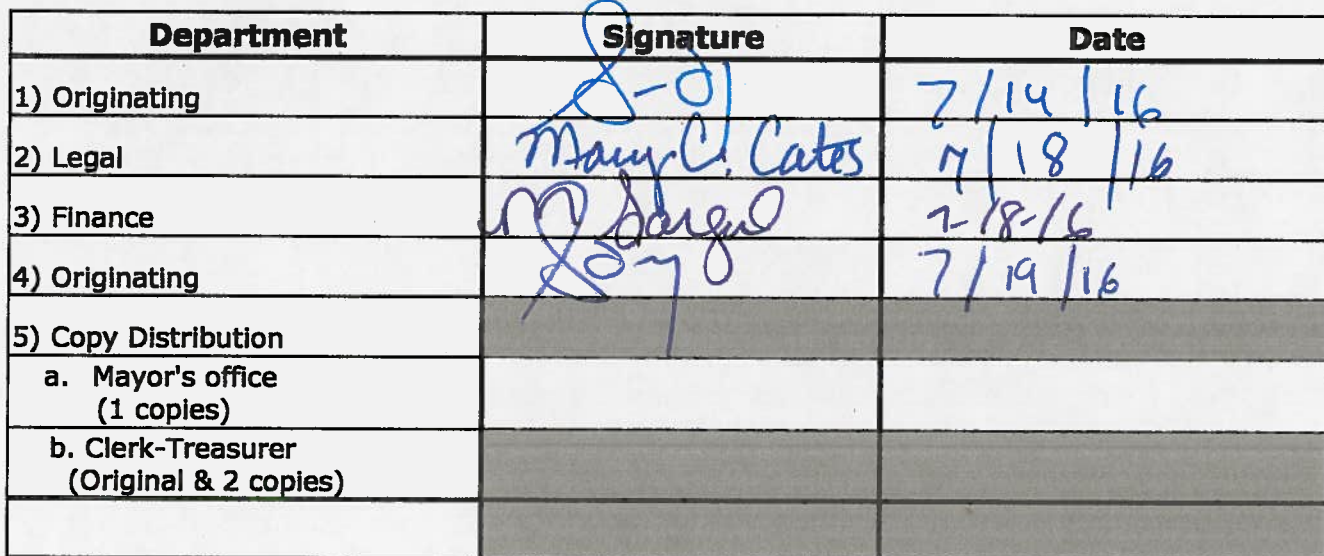 Department Signature Date
1) Originating 7/14/16
2) Legal Mary C. Cates 7/18/16
3) Finance 7-18-16
4) Originating 7/19/16
5) Copy Distribution
a. Mayor's office
(1 copies)
b. Clerk-Treasurer
(Original & 2 copies)